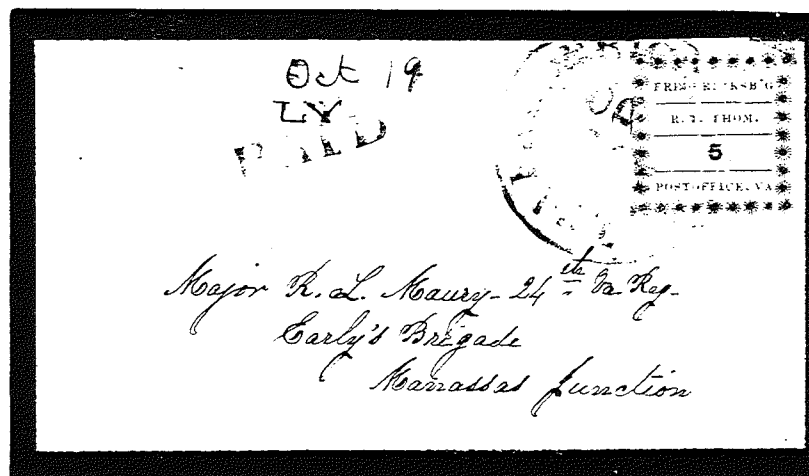 Oct 19
PAID
FREDERICKSB'G
R. T. THOM.
5
POST OFFICE, VA
Major R. L. Maury - 24th Va Reg-
Early's Brigade
Manassas Junction